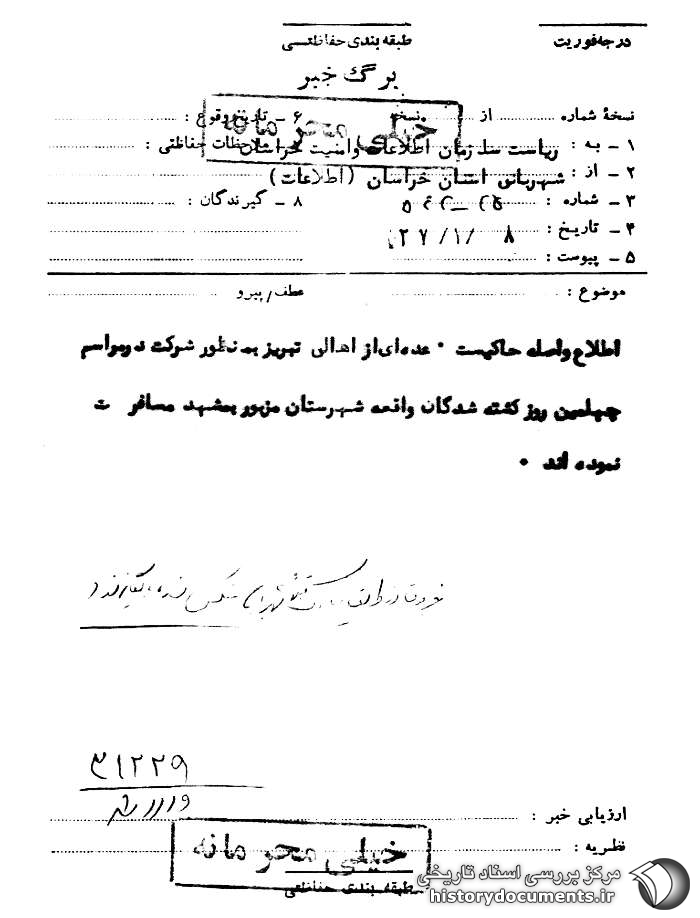 درجه فوریت
طبقه بندی حفاظتی
برگ خبر
خیلی محرمانه
نسخهٔ شماره ........ از ........ نسخه
۶ ـ تاریخ وقوع :
۱ ـ به : ریاست سازمان اطلاعات وامنیت خراسان
ملاحظات حفاظتی :
۲ ـ از : شهربانی استان خراسان (اطلاعات)
۳ ـ شماره :
۸ ـ گیرندگان :
۴ ـ تاریخ : ۲۷/۱/ ۸
۵ ـ پیوست :
موضوع :
عطف/پیرو
اطلاع واصله حاکیست ۰ عده‌ای از اهالی تبریز به منظور شرکت در مراسم
چهلمین روز کشته شدگان واقعه شهرستان مزبور بمشهد مسافر ت
نموده اند ۰
۳۱۲۲۹
ارزیابی خبر :
نظریه :
خیلی محرمانه
طبقه بندی حفاظتی
مرکز بررسی اسناد تاریخی
historydocuments.ir